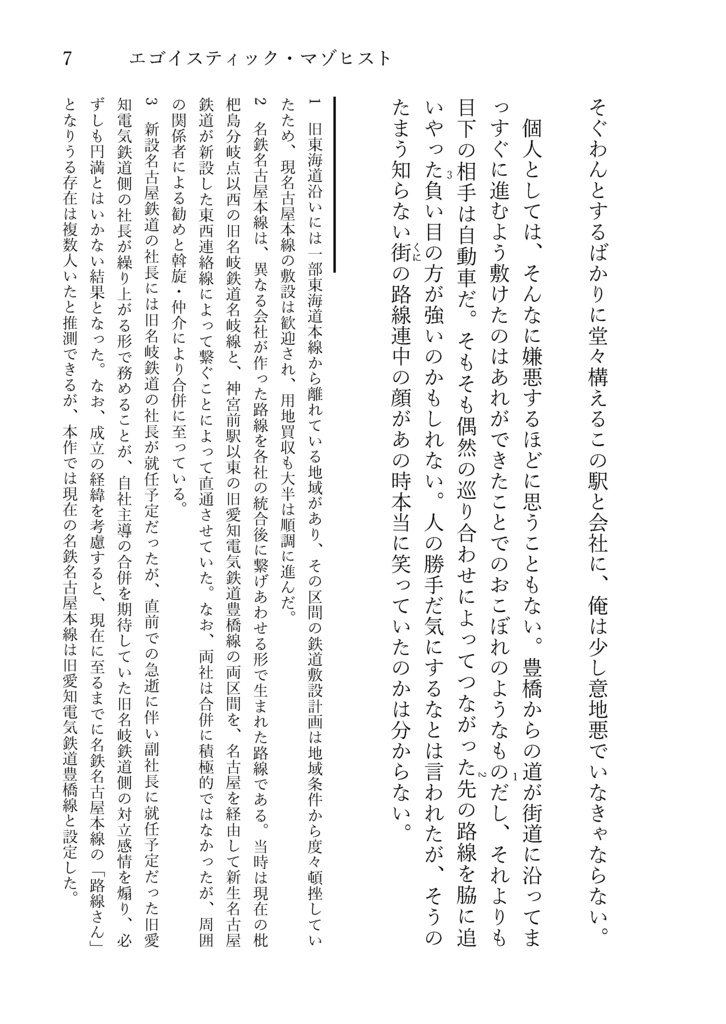 7　エゴイスティック・マゾヒスト
そぐわんとするばかりに堂々構えるこの駅と会社に、俺は少し意地悪でいなきゃならない。
個人としては、そんなに嫌悪するほどに思うこともない。豊橋からの道が街道に沿ってま
っすぐに進むよう敷けたのはあれができたことでのおこぼれのようなもの1だし、それよりも
目下の相手は自動車だ。そもそも偶然の巡り合わせによってつながった先2の路線を脇に追
いやった負い目3の方が強いのかもしれない。人の勝手だ気にするなとは言われたが、そうの
たまう知らない街くにの路線連中の顔があの時本当に笑っていたのかは分からない。
1　旧東海道沿いには一部東海道本線から離れている地域があり、その区間の鉄道敷設計画は地域条件から度々頓挫してい
たため、現名古屋本線の敷設は歓迎され、用地買収も大半は順調に進んだ。
2　名鉄名古屋本線は、異なる会社が作った路線を各社の統合後に繋げあわせる形で生まれた路線である。当時は現在の枇
杷島分岐点以西の旧名岐鉄道名岐線と、神宮前駅以東の旧愛知電気鉄道豊橋線の両区間を、名古屋を経由して新生名古屋
鉄道が新設した東西連絡線によって繋ぐことによって直通させていた。なお、両社は合併に積極的ではなかったが、周囲
の関係者による勧めと斡旋・仲介により合併に至っている。
3　新設名古屋鉄道の社長には旧名岐鉄道の社長が就任予定だったが、直前での急逝に伴い副社長に就任予定だった旧愛
知電気鉄道側の社長が繰り上がる形で務めることが、自社主導の合併を期待していた旧名岐鉄道側の対立感情を煽り、必
ずしも円満とはいかない結果となった。なお、成立の経緯を考慮すると、現在に至るまでに名鉄名古屋本線の「路線さん」
となりうる存在は複数人いたと推測できるが、本作では現在の名鉄名古屋本線は旧愛知電気鉄道豊橋線と設定した。